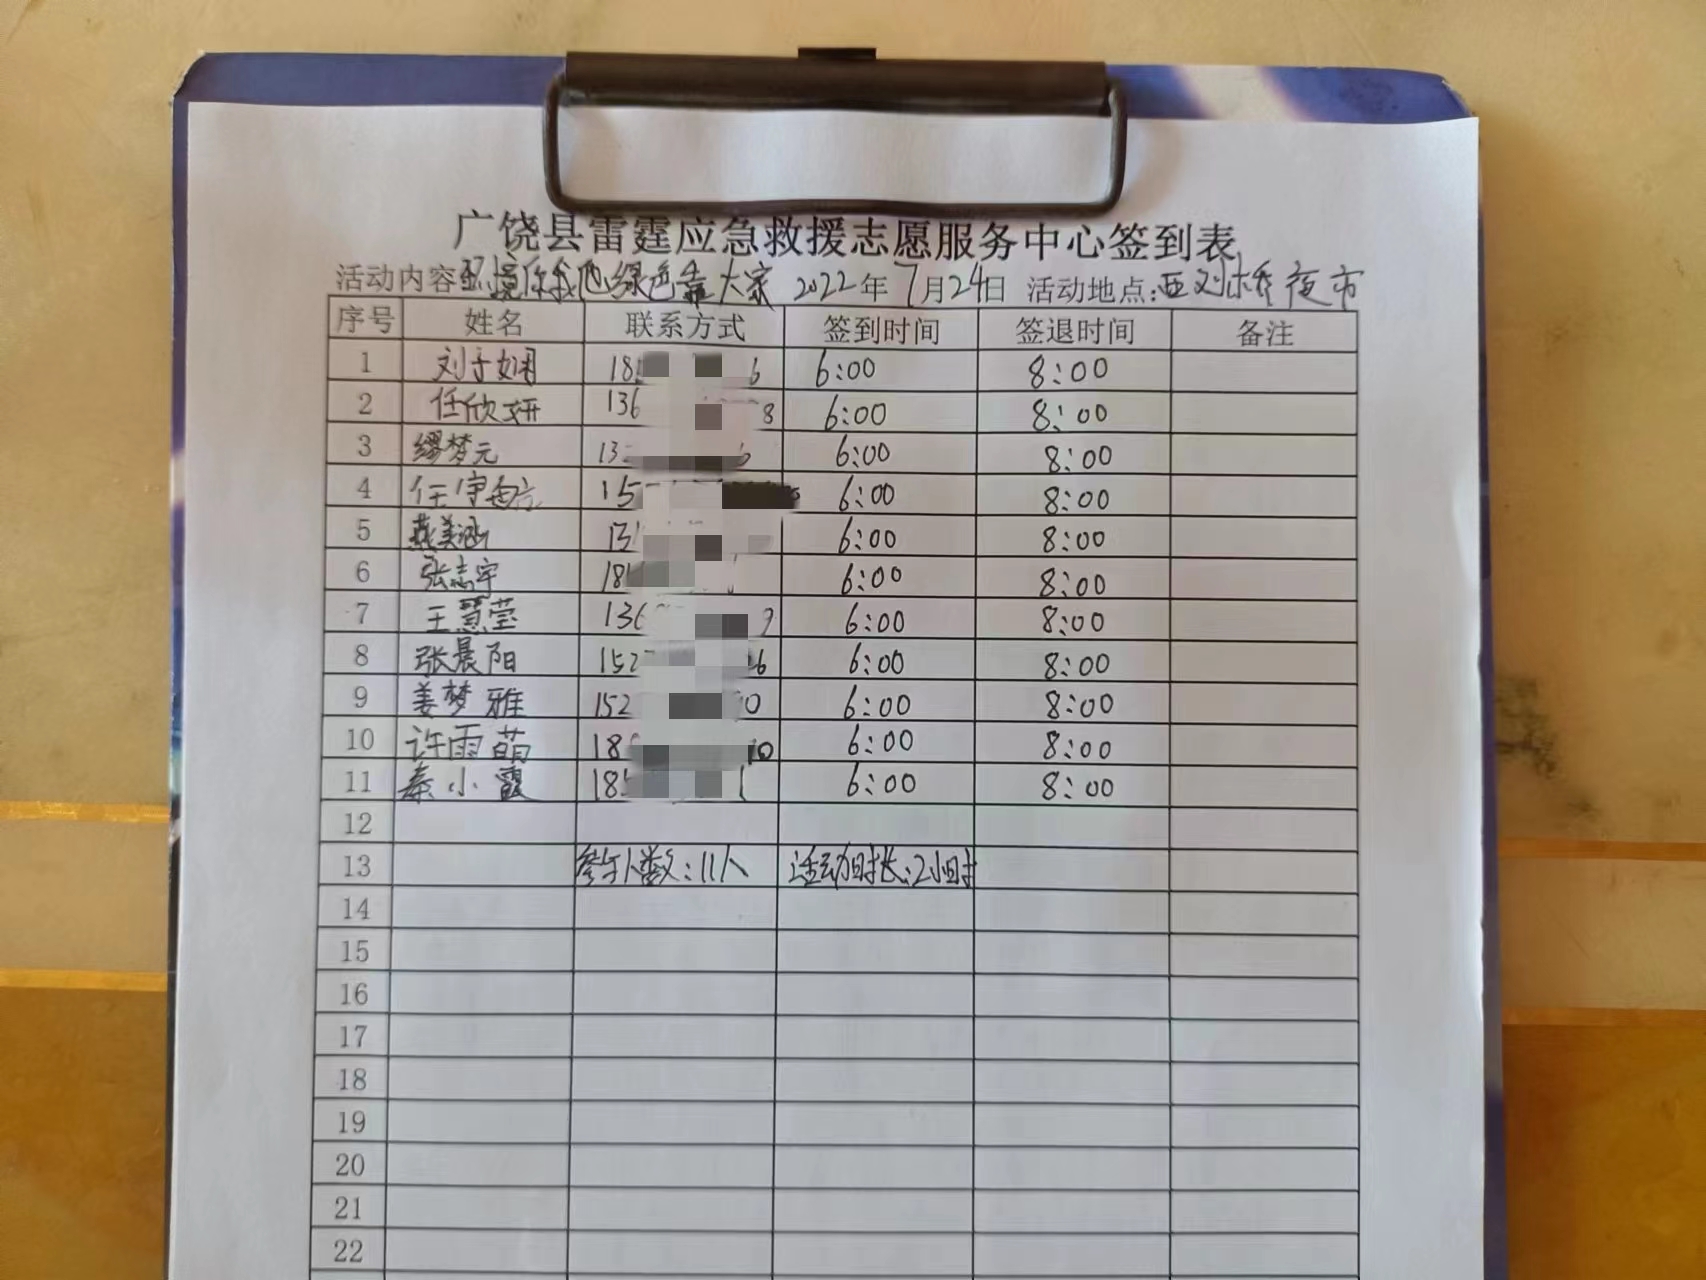 广饶县雷霆应急救援志愿服务中心签到表
活动内容 环境你我他绿色靠大家 2022年7月24日 活动地点:西刘桥夜市
序号 姓名 联系方式 签到时间 签退时间 备注
1 刘子娴 18 6 6:00 8:00
2 任欣妍 136 8 6:00 8:00
3 缪梦元 13 6 6:00 8:00
4 任宇 15 6:00 8:00
5 燕美涵 13 6:00 8:00
6 张志宇 18 6:00 8:00
7 王慧莹 136 9 6:00 8:00
8 张晨阳 152 6 6:00 8:00
9 姜梦雅 152 0 6:00 8:00
10 许雨萌 18 0 6:00 8:00
11 秦小霞 18 6:00 8:00
12
13 参与人数:11人 活动时长:2小时
14
15
16
17
18
19
20
21
22